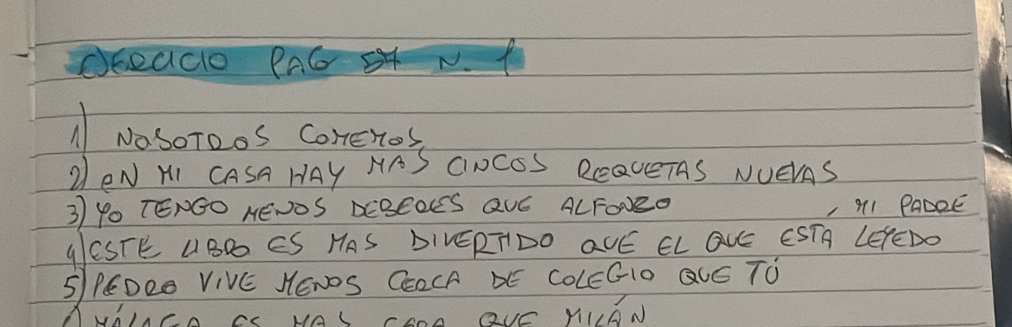 EJERCICIO PAG 57 N. 1
1) NOSOTROS COMEMOS
2) EN MI CASA HAY MAS CINCOS REQUETAS NUEVAS
3) YO TENGO MENOS DEBERES QUE ALFONZO
, MI PADRE
4) ESTE LIBRO ES MAS DIVERTIDO QUE EL QUE ESTÁ LEYEDO
5) PEDRO VIVE MENOS CERCA DE COLEGIO QUE TÚ
6) MÁLAGA ES MAS CARA QUE MILÁN